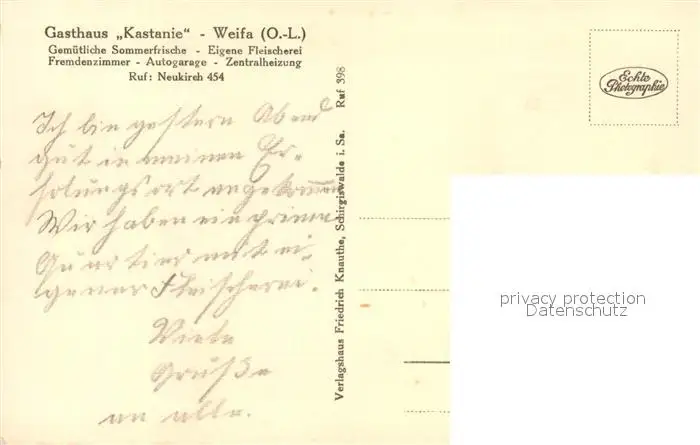 Gasthaus „Kastanie“ - Weifa (O.-L.)
Gemütliche Sommerfrische - Eigene Fleischerei
Fremdenzimmer - Autogarage - Zentralheizung
Ruf: Neukirch 454
Ich bin gestern Abend
gut in meinen Er-
holungsort angekommen
Wir haben ein prima
Quartier mit ei-
gener Fleischerei.
Viele
Grüße
an alle.
Verlagshaus Friedrich Knauthe, Schirgiswalde i. Sa. Ruf 398
Echte
Photographie
privacy protection
Datenschutz